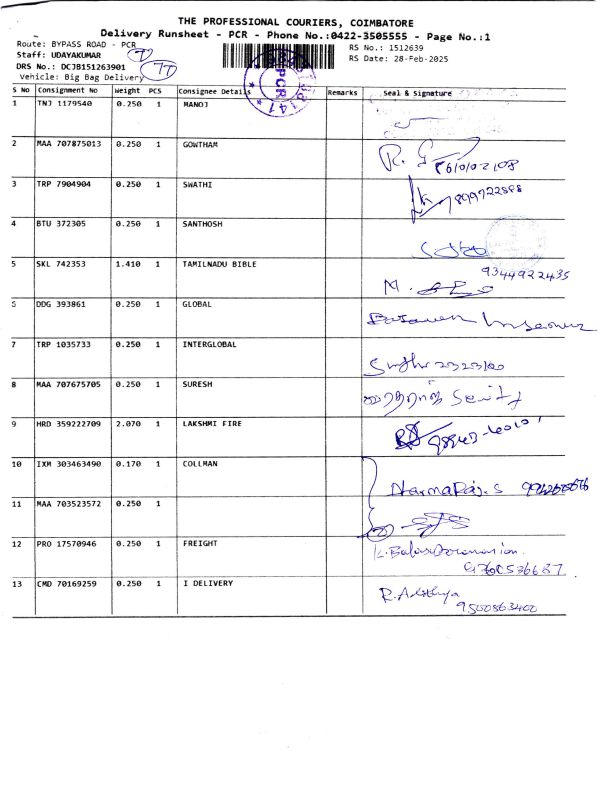 THE PROFESSIONAL COURIERS, COIMBATORE
Delivery Runsheet - PCR - Phone No.:0422-3505555 - Page No.:1
Route: BYPASS ROAD - PCR
RS No.: 1512639
Staff: UDAYAKUMAR
RS Date: 28-Feb-2025
DRS No.: DCJB151263901
Vehicle: Big Bag Delivery
PCR
S No Consignment No Weight PCS Consignee Details Remarks Seal & Signature
1 TNJ 1179540 0.250 1 MANOJ
2 MAA 707875013 0.250 1 GOWTHAM
3 TRP 7904904 0.250 1 SWATHI
4 BTU 372305 0.250 1 SANTHOSH
5 SKL 742353 1.410 1 TAMILNADU BIBLE 9344922435
6 DDG 393861 0.250 1 GLOBAL
7 TRP 1035733 0.250 1 INTERGLOBAL
8 MAA 707675705 0.250 1 SURESH
9 HRD 359222709 2.070 1 LAKSHMI FIRE
10 IXM 303463490 0.170 1 COLLMAN
11 MAA 703523572 0.250 1
12 PRO 17570946 0.250 1 FREIGHT
9760536687
13 CMD 70169259 0.250 1 I DELIVERY
9500863400